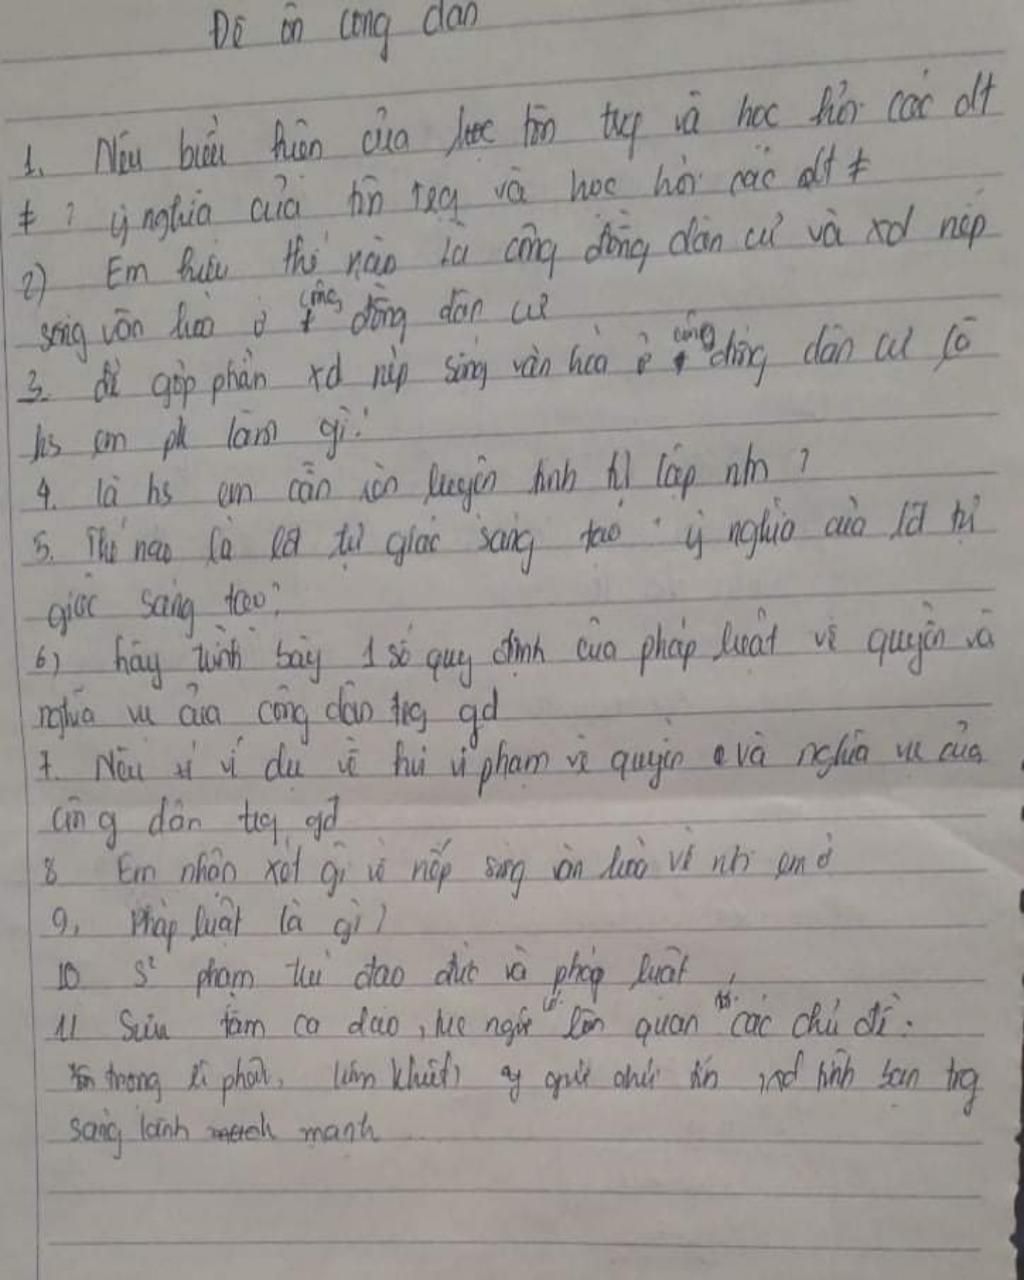 Đề ôn công dân
1. Nêu biểu hiện của tôn trọg và học hỏi các dt
≠ ? ý nghĩa của tôn trọg và học hỏi các dt ≠
2) Em hiểu thế nào là cộng đồng dân cư và xd nếp
sống văn hoá ở cộng đồng dân cư
3. để góp phần xd nếp sống văn hoá ở cộng đồng dân cư là
hs em pk làm gì?
4. là hs em cần rèn luyện tính tự lập ntn ?
5. Thế nào là lđ tự giác sáng tạo ý nghĩa của lđ tự
giác sáng tạo?
6) hãy trình bày 1 số quy định của pháp luật về quyền và
nghĩa vụ của công dân trog gđ
7. Nêu ví dụ về hvi vi phạm về quyền và nghĩa vụ của
công dân trog gđ
8 Em nhận xét gì về nếp sống văn hoá về nơi em ở
9. Pháp luật là gì?
10 S² phạm trù đạo đức và pháp luật
11 Sưu tầm ca dao, tục ngữ có liên quan tới các chủ đề:
Tôn trong lẽ phải, liêm khiết, giữ chữ tín, xd tình bạn trog
sáng lành mạnh